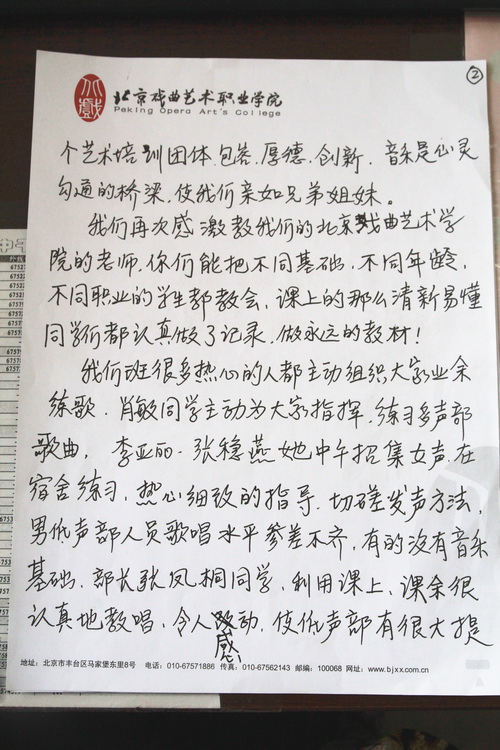 ②
北戏
北京戏曲艺术职业学院
Peking Opera Art's College
个艺术培训团体.包容.厚德.创新.音乐是心灵
勾通的桥梁,使我们亲如兄弟姐妹。
我们再次感激教我们的北京戏曲艺术学
院的老师,你们能把不同基础.不同年龄,
不同职业的学生都教会,课上的那么清新易懂
同学们都认真做了记录.做永远的教材!
我们班很多热心的人都主动组织大家业余
练歌.肖敏同学主动为大家指挥.练习多声部
歌曲,李亚丽.张稳燕她中午招集女声.在
宿舍练习,热心细致的指导.切磋发声方法,
男低声部人员歌唱水平参差不齐,有的没有音乐
基础.部长张凤桐同学,利用课上、课余很
认真地教唱,令人感动,使低声部有很大提
地址:北京市丰台区马家堡东里8号 电话:010-67571886 传真:010-67562143 邮编:100068 网址:www.bjxx.com.cn